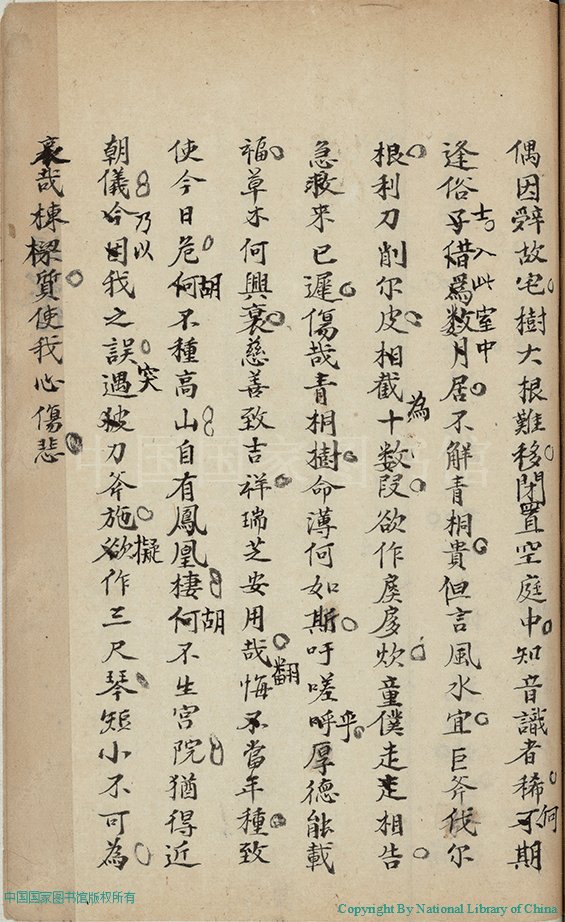 偶因辤故宅樹大根難移閒置空庭中知音識者稀何可期
逢俗子士入此室中借爲数月居不解青桐貴但言風水宜巨斧伐尔
根利刀削尔皮相截十為数段欲作扊扅炊童僕走走相告
急救来已遲傷哉青桐樹命薄何如斯吁嗟呼乎厚德能載
福草木何興衰慈善致吉祥瑞芝安用哉悔翻不當年種致
使今日危何胡不種高山自有鳳凰棲何胡不生宮院猶得近
朝儀今因乃以我之誤遇突被刀斧施欲擬作三尺琴短小不可為
哀哉棟樑質使我心傷悲
中国国家图书馆
中国国家图书馆版权所有
Copyright By National Library of China